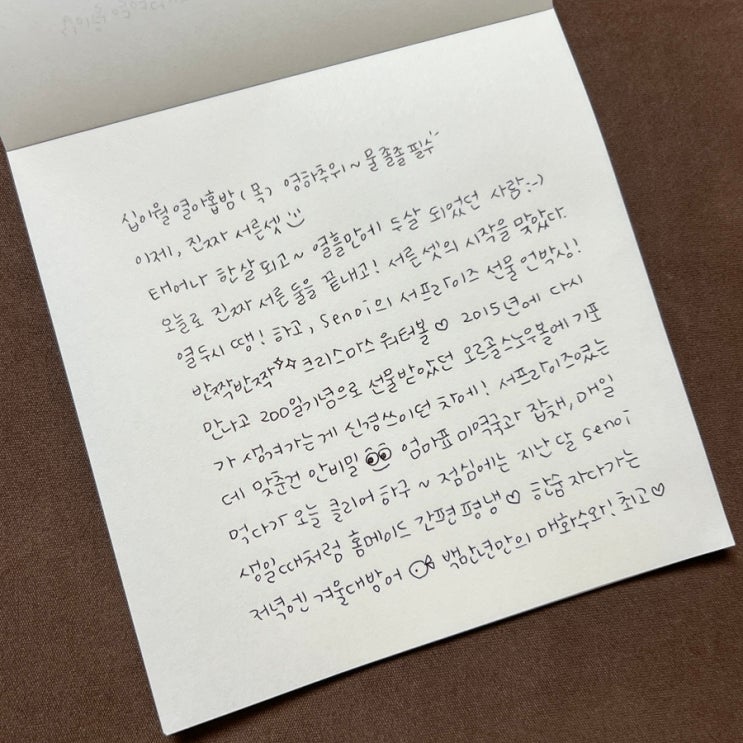 십이월열아홉밤(목) 영하추위~ 물졸졸필수
이제, 진짜 서른셋
태어나 한살되고~ 열흘만에 두살 되었던 사랑:-)
오늘로 진짜 서른 둘을 끝내고! 서른셋의 시작을 맞았다.
열두시 땡! 하고, senoi의 서프라이즈 선물 언박싱!
반짝반짝✨ 크리스마스 워터볼♡ 2015년에 다시
만나고 200일기념으로 선물받았던 오르골스노우볼에 기포
가 생겨가는게 신경쓰이던 찻에! 서프라이즈였는
데 맞춘건 안비밀👀 엄마표 미역국과 잡챛, 매일
먹다가 오늘 클리어 하구~ 점심에는 지난 달 senoi
생일때처럼 홈메이드 간편 평냉♡ 한숨 자다가는
저녁엔 겨울대방어🐟 백만년만의 매화수와! 최고♡